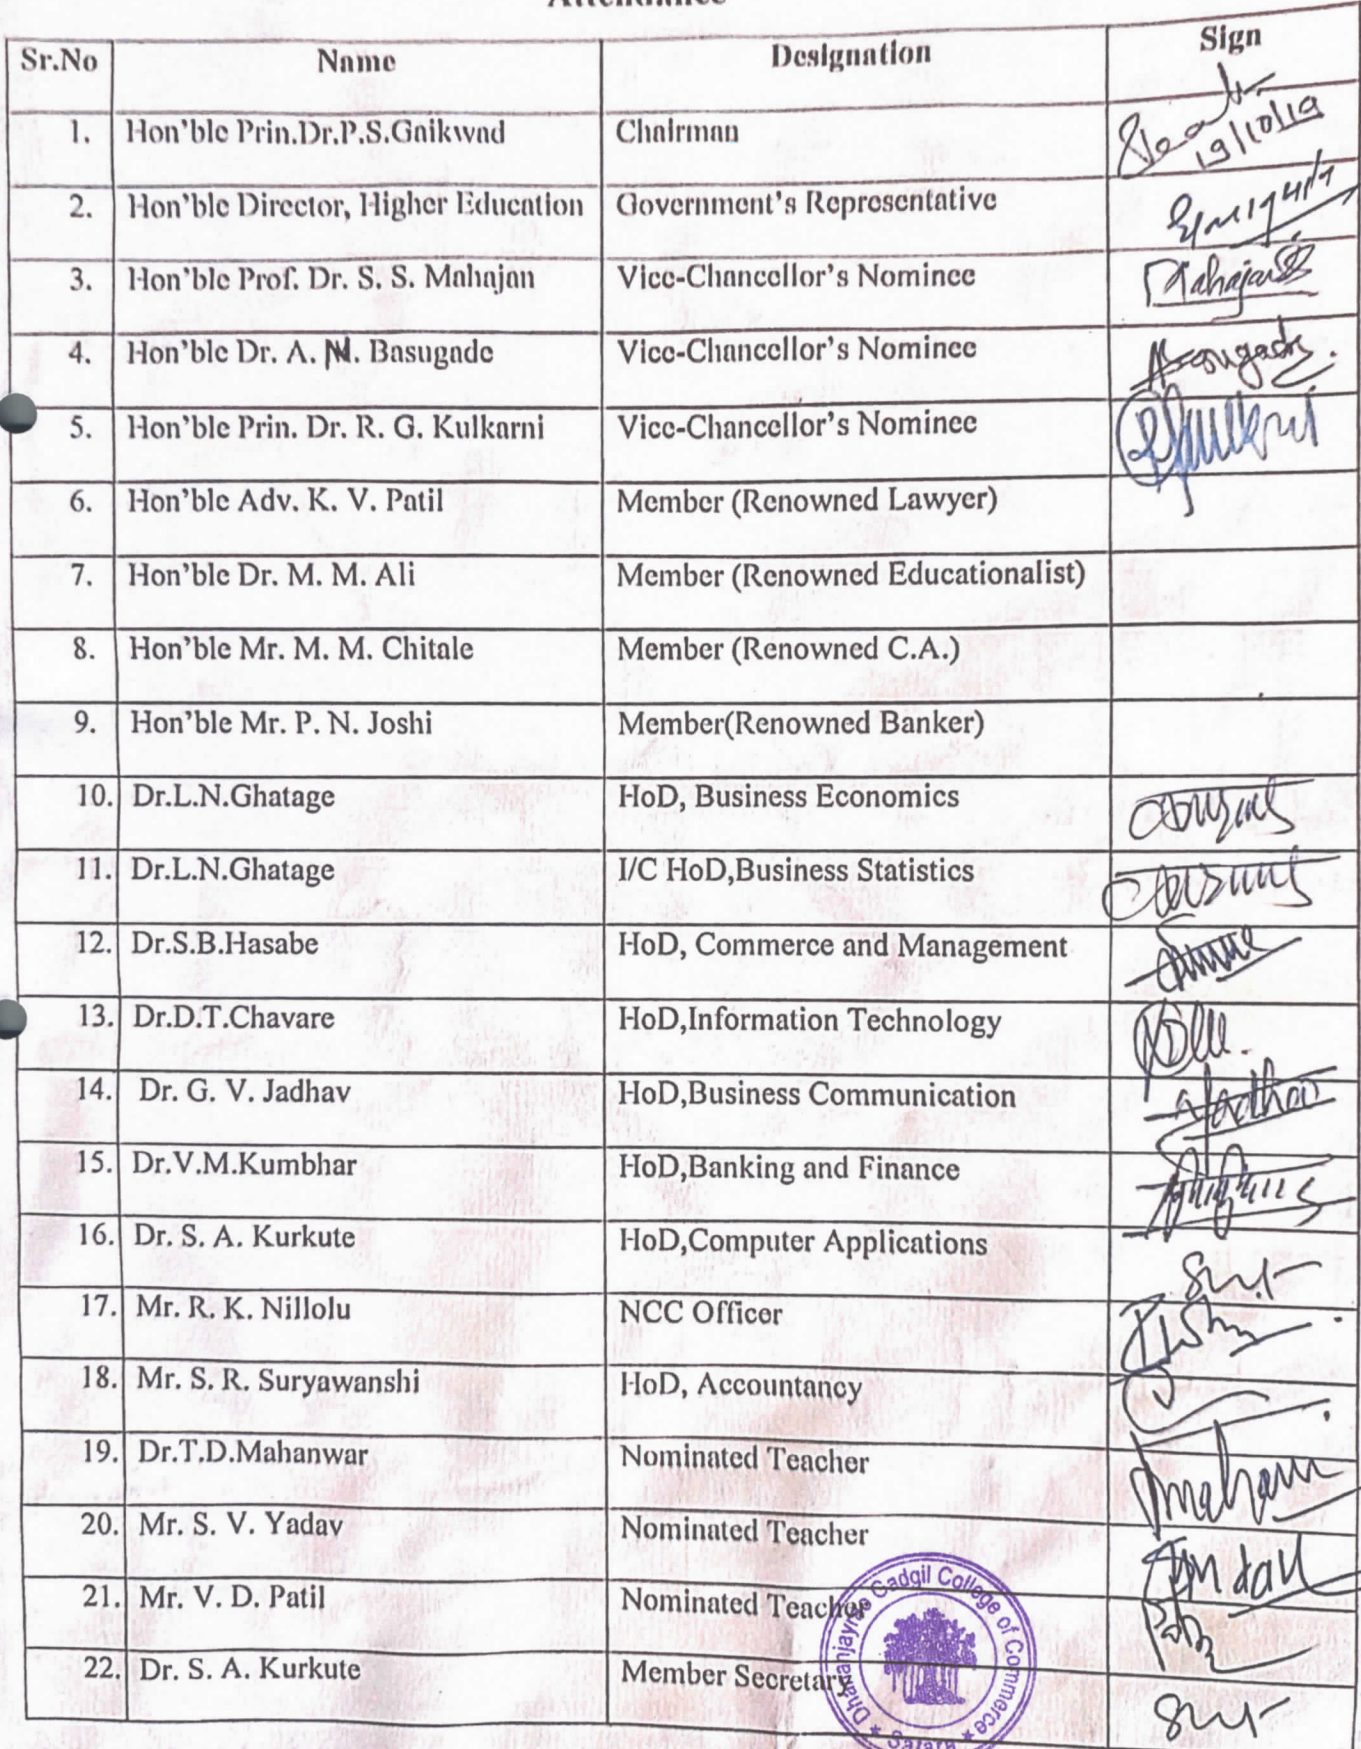 Attendance
Sr.No Name Designation Sign
1. Hon'ble Prin.Dr.P.S.Gaikwad Chairman
19/10/19
2. Hon'ble Director, Higher Education Government's Representative
3. Hon'ble Prof. Dr. S. S. Mahajan Vice-Chancellor's Nominee MahajanSS
4. Hon'ble Dr. A. M. Basugade Vice-Chancellor's Nominee
5. Hon'ble Prin. Dr. R. G. Kulkarni Vice-Chancellor's Nominee
6. Hon'ble Adv. K. V. Patil Member (Renowned Lawyer)
7. Hon'ble Dr. M. M. Ali Member (Renowned Educationalist)
8. Hon'ble Mr. M. M. Chitale Member (Renowned C.A.)
9. Hon'ble Mr. P. N. Joshi Member(Renowned Banker)
10. Dr.L.N.Ghatage HoD, Business Economics
11. Dr.L.N.Ghatage I/C HoD,Business Statistics
12. Dr.S.B.Hasabe HoD, Commerce and Management
13. Dr.D.T.Chavare HoD,Information Technology
14. Dr. G. V. Jadhav HoD,Business Communication
15. Dr.V.M.Kumbhar HoD,Banking and Finance
16. Dr. S. A. Kurkute HoD,Computer Applications
17. Mr. R. K. Nillolu NCC Officer
18. Mr. S. R. Suryawanshi HoD, Accountancy
19. Dr.T.D.Mahanwar Nominated Teacher
20. Mr. S. V. Yadav Nominated Teacher
21. Mr. V. D. Patil Nominated Teacher
22. Dr. S. A. Kurkute Member Secretary
Dhananjayrao Gadgil College of Commerce
★ Satara ★